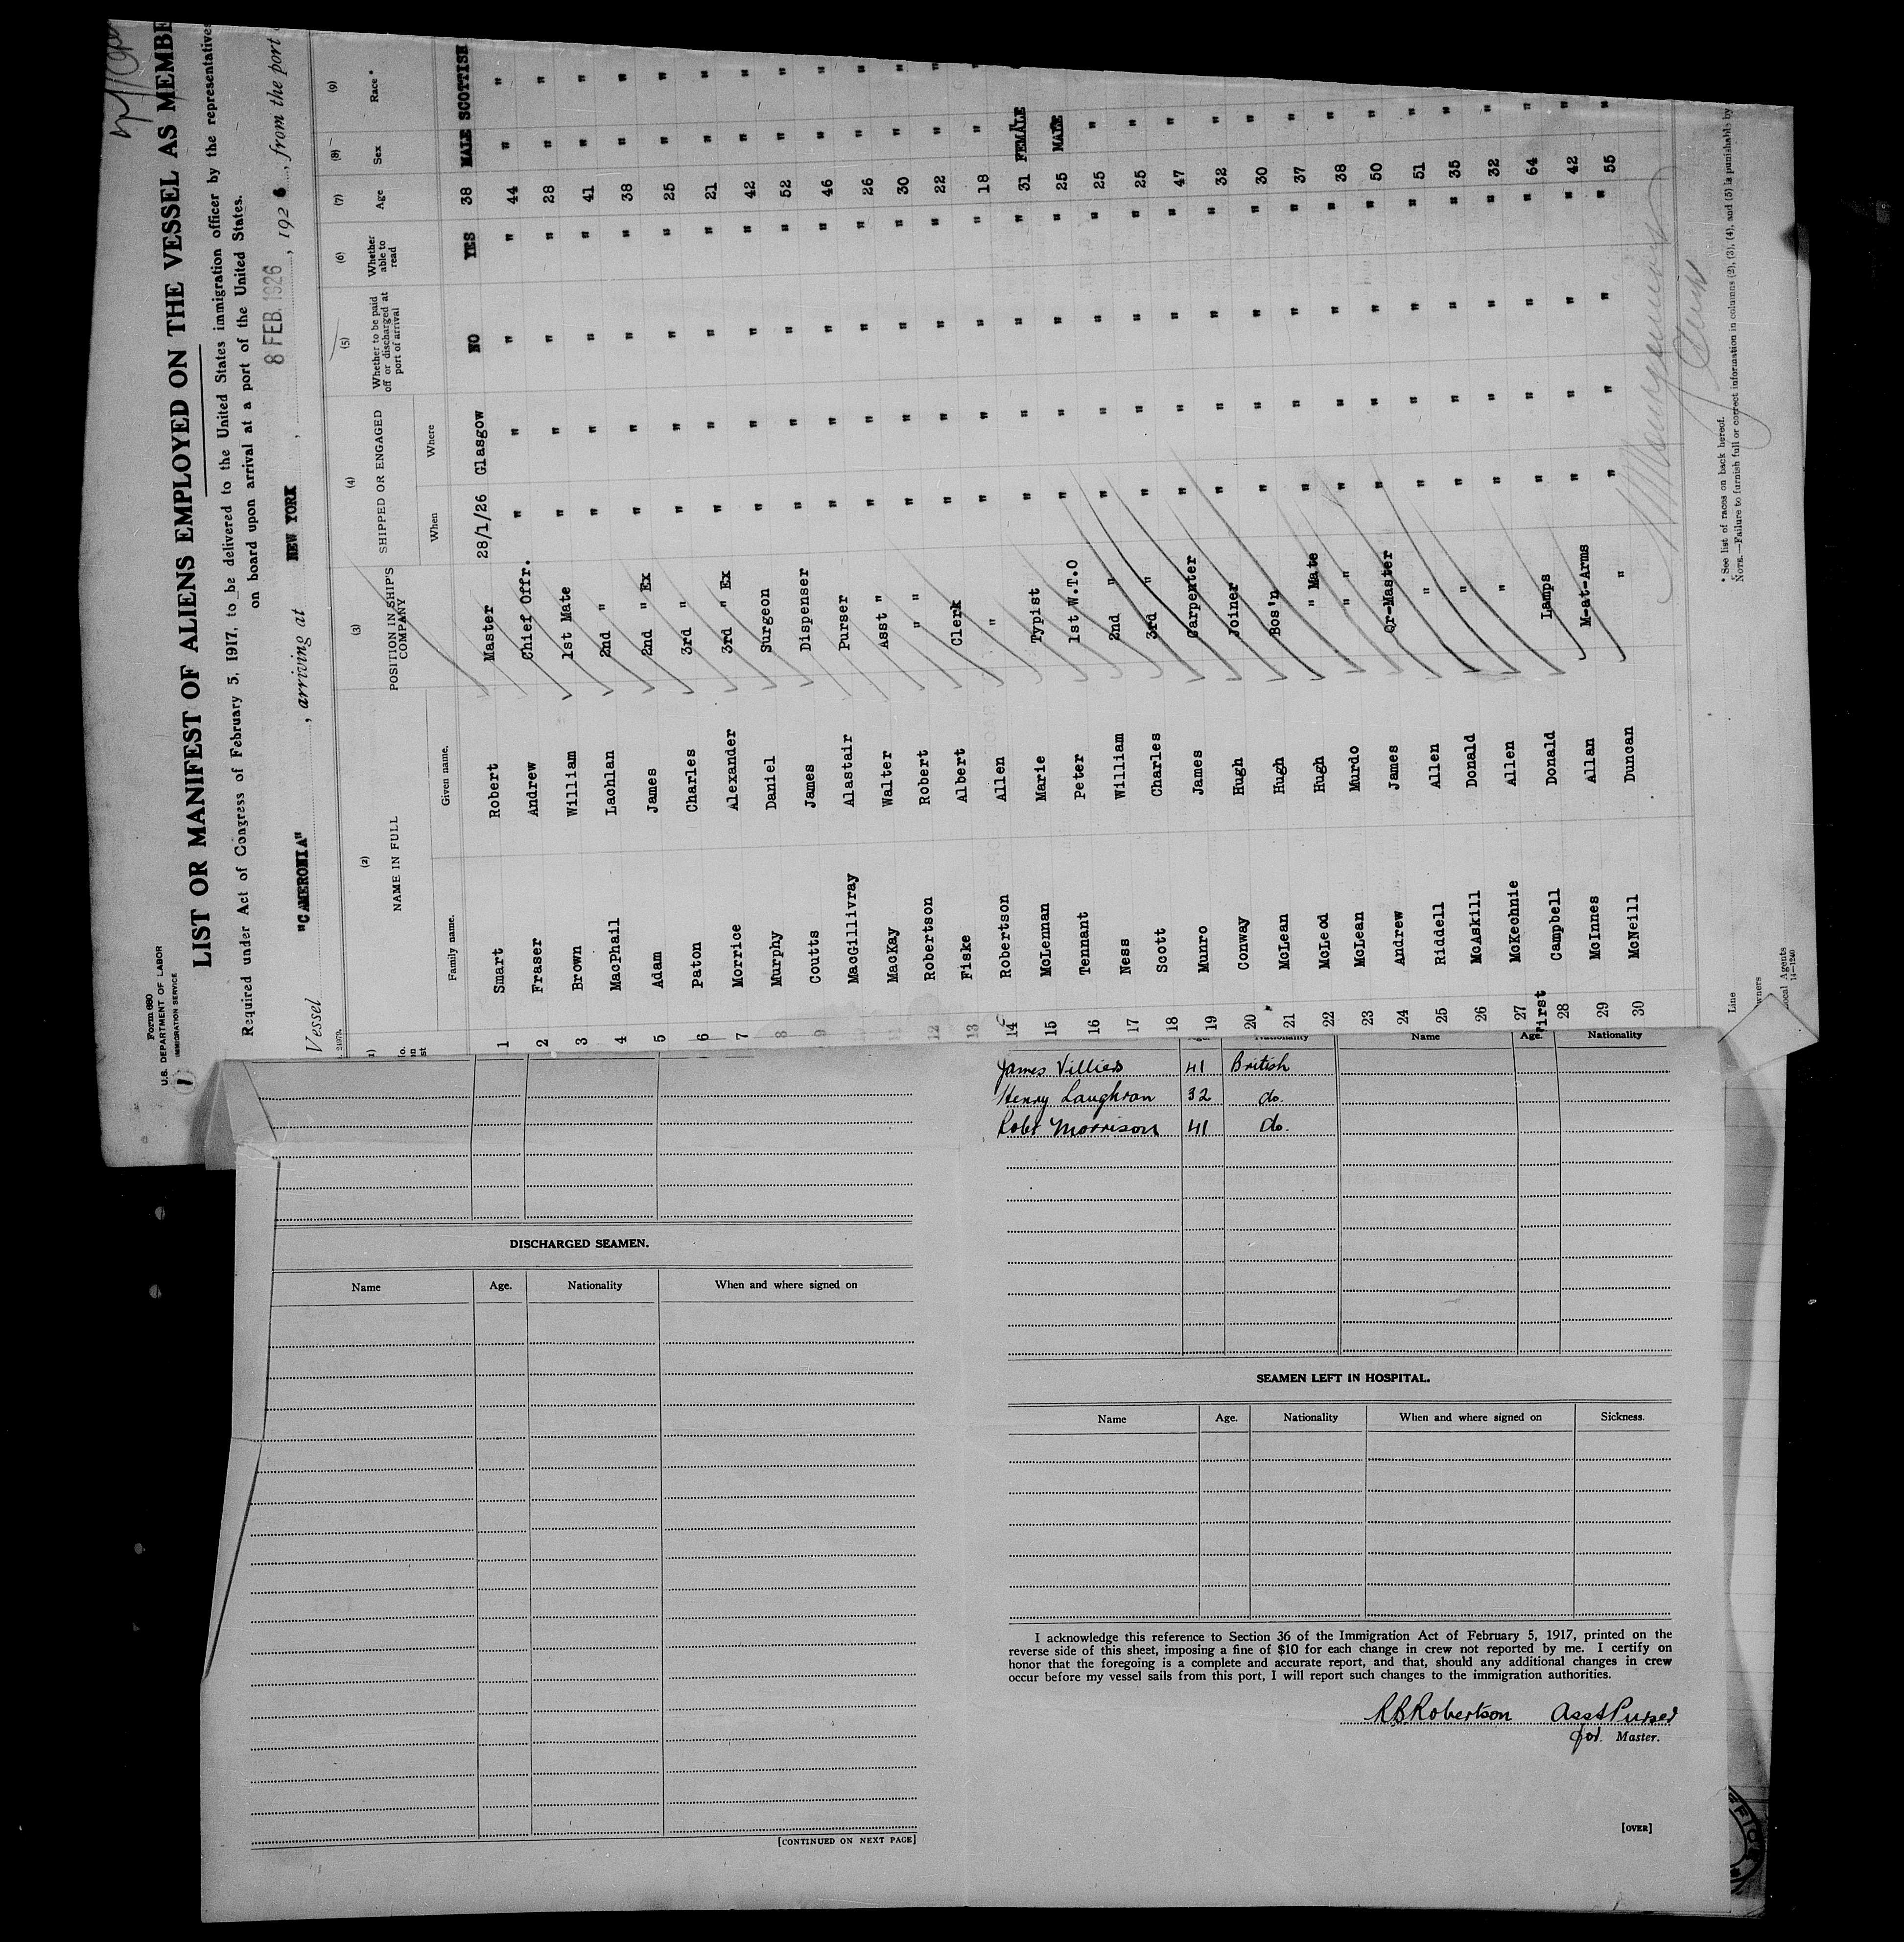 Form 680
U.S. DEPARTMENT OF LABOR
IMMIGRATION SERVICE
1
LIST OR MANIFEST OF ALIENS EMPLOYED ON THE VESSEL AS MEMBE
Required under Act of Congress of February 5, 1917, to be delivered to the United States immigration officer by the representatives
on board upon arrival at a port of the United States.
Vessel "CAMERONIA", arriving at NEW YORK, 8 FEB. 1926, 1926, from the port
(2) (3) (4) (5) (6) (7) (8) (9)
NAME IN FULL POSITION IN SHIP'S COMPANY SHIPPED OR ENGAGED Whether to be paid off or discharged at port of arrival Whether able to read Age Sex Race *
Family name. Given name. When Where
1 Smart Robert Master 28/1/26 Glasgow NO YES 38 MALE SCOTTISH
2 Fraser Andrew Chief Offr. " " " " 44 " "
3 Brown William 1st Mate " " " " 28 " "
4 MacPhail Lachlan 2nd " " " " " 41 " "
5 Adam James 2nd " Ex " " " " 38 " "
6 Paton Charles 3rd " " " " " 25 " "
7 Morrice Alexander 3rd " Ex " " " " 21 " "
8 Murphy Daniel Surgeon " " " " 42 " "
9 Coutts James Dispenser " " " " 52 " "
MacGillivray Alastair Purser " " " " 46 " "
MacKay Walter Asst " " " " " 26 " "
12 Robertson Robert " " " " " " 30 " "
13 Fiske Albert Clerk " " " " 22 " "
14 Robertson Allen " " " " " 18 " "
15 McLennan Marie Typist " " " " 31 FEMALE
16 Tennant Peter 1st W.T.O " " " " 25 MALE "
17 Ness William 2nd " " " " " 25 " "
18 Scott Charles 3rd " " " " " 25 " "
19 Munro James Carpenter " " " " 47 " "
20 Conway Hugh Joiner " " " " 32 " "
21 McLean Hugh Bos'n " " " " 30 " "
22 McLeod Hugh " Mate " " " " 37 " "
23 McLean Murdo " " " " " " 38 " "
24 Andrew James Qr-Master " " " " 50 " "
25 Riddell Allen " " " " " 51 " "
26 McAskill Donald " " " " " 35 " "
27 McKechnie Allen " " " " " 32 " "
First
28 Campbell Donald Lamps " " " " 64 " "
29 McInnes Allan M-at-Arms " " " " 42 " "
30 McNeill Duncan " " " " " 55 " "
Line
wners
ocal Agents
14—1240
* See list of races on back hereof.
NOTE.—Failure to furnish full or correct information in columns (2), (3), (4), and (5) is punishable by
Nationality Name Age. Nationality
James Villiers 41 British
Henry Laughran 32 do.
Robt Morrison 41 Do.
DISCHARGED SEAMEN.
Name Age. Nationality When and where signed on
[CONTINUED ON NEXT PAGE]
SEAMEN LEFT IN HOSPITAL.
Name Age. Nationality When and where signed on Sickness.
I acknowledge this reference to Section 36 of the Immigration Act of February 5, 1917, printed on the
reverse side of this sheet, imposing a fine of $10 for each change in crew not reported by me. I certify on
honor that the foregoing is a complete and accurate report, and that, should any additional changes in crew
occur before my vessel sails from this port, I will report such changes to the immigration authorities.
R B Robertson Asst Purser
for. Master.
[OVER]